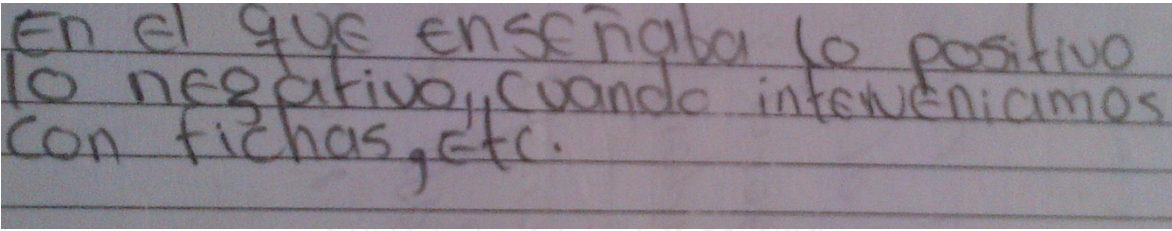 En el que enseñaba lo positivo
lo negativo,, cuando interveniamos
con fichas, etc.